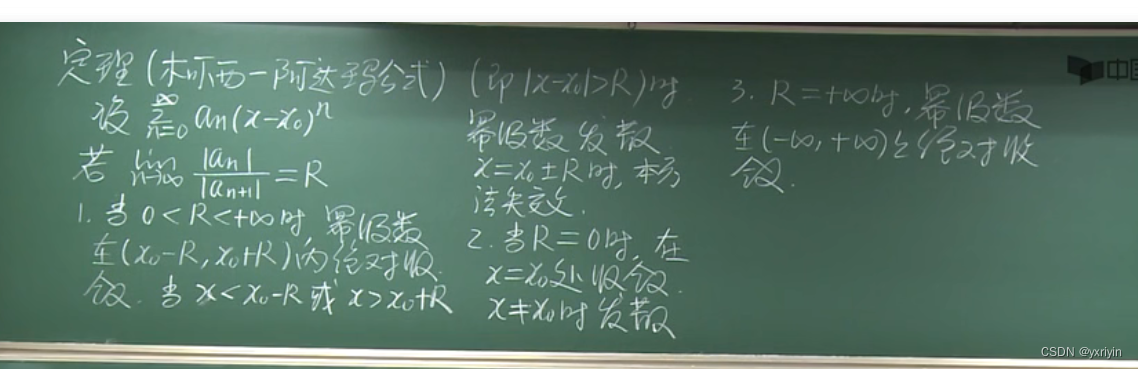 定理(柯西-阿达玛公式)
设 ∞∑n=0 an(x-x0)^n
若 lim n→∞ |an|/|an+1| = R
1. 当 0<R<+∞时 幂级数
在(x0-R, x0+R)内绝对收
敛. 当 x<x0-R 或 x>x0+R
(即|x-x0|>R)时
幂级数发散
x=x0±R时, 本方
法失效.
2. 当R=0时, 在
x=x0处收敛.
x≠x0时发散
3. R=+∞时, 幂级数
在(-∞, +∞)上绝对收
敛.
中国
CSDN @yxriyin